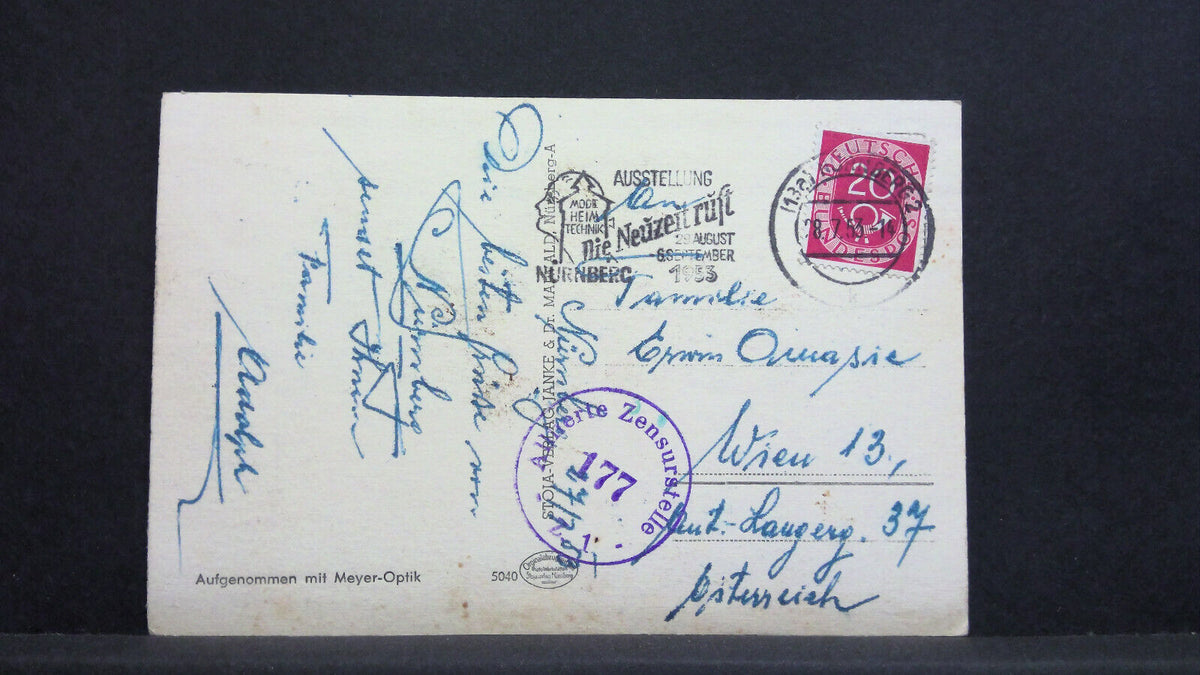 Die besten Grüße von
Nürnberg
sendet Ihnen
Familie
Adolph
Aufgenommen mit Meyer-Optik
5040
STOJA-VERLAG JANKE & Dr. MAIWALD, Nürnberg-A
Nürnberg
27/7 53
MODE
HEIM
TECHNIK
AUSSTELLUNG
Die Neuzeit ruft
29.AUGUST
6.SEPTEMBER
NÜRNBERG 1953
28.7.53-14
DEUTSCHE
BUNDESPOST
20
An
Familie
Erwin
Wien 13.,
37
Österreich
Alliierte Zensurstelle
177
- 1 -